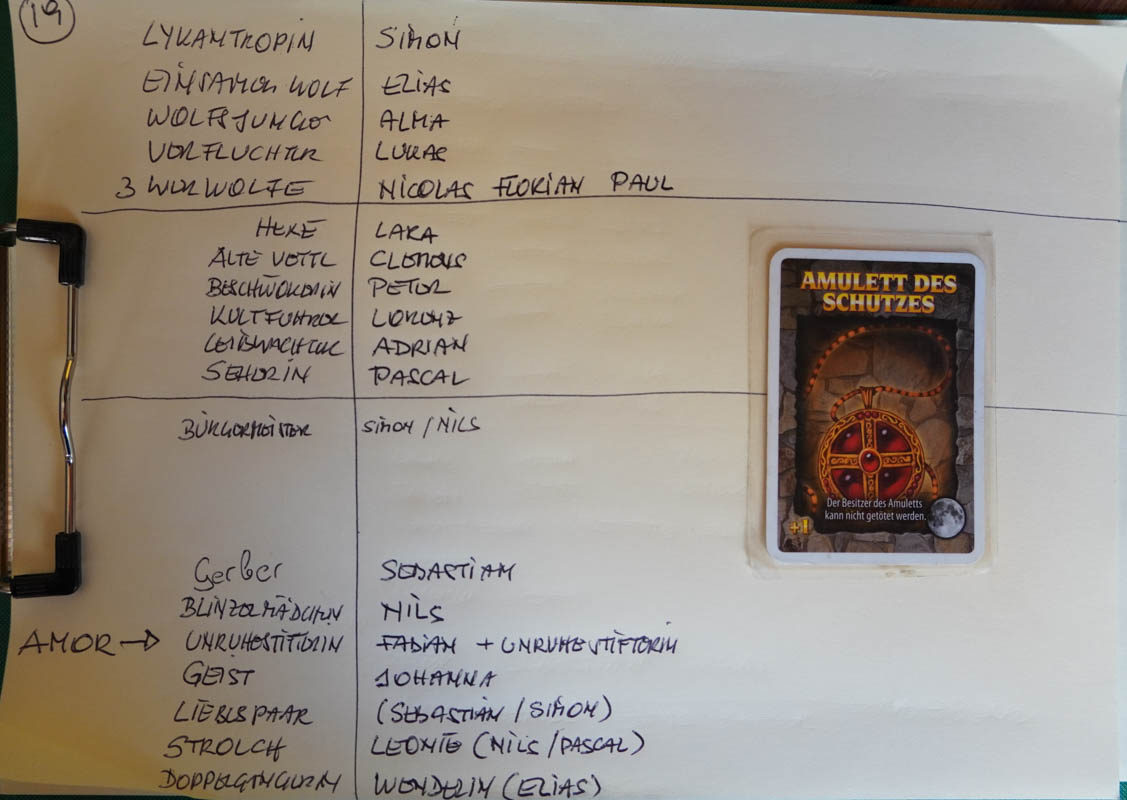 19
LYKANTROPIN SIMON
EINSAMER WOLF ELIAS
WOLFSJUNGE ALMA
VERFLUCHTER LUKAS
3 WERWOLFE NICOLAS FLORIAN PAUL
HEXE LARA
ALTE VETTL CLEMENS
BESCHWÖRERIN PETER
KULTFUHRER LORENZ
LEIBWACHTER ADRIAN
SEHERIN PASCAL
BÜRGERMEISTER SIMON / NILS
AMULETT DES
SCHUTZES
Der Besitzer des Amuletts
kann nicht getötet werden.
+1
Gerber SEBASTIAN
BLINZELMÄDCHEN NILS
AMOR → UNRUHESTIFTERIN FABIAN + UNRUHESTIFTERIN
GEIST JOHANNA
LIEBESPAAR (SEBASTIAN / SIMON)
STROLCH LEONIE (NILS / PASCAL)
DOPPELGENGERIN WENDELIN (ELIAS)